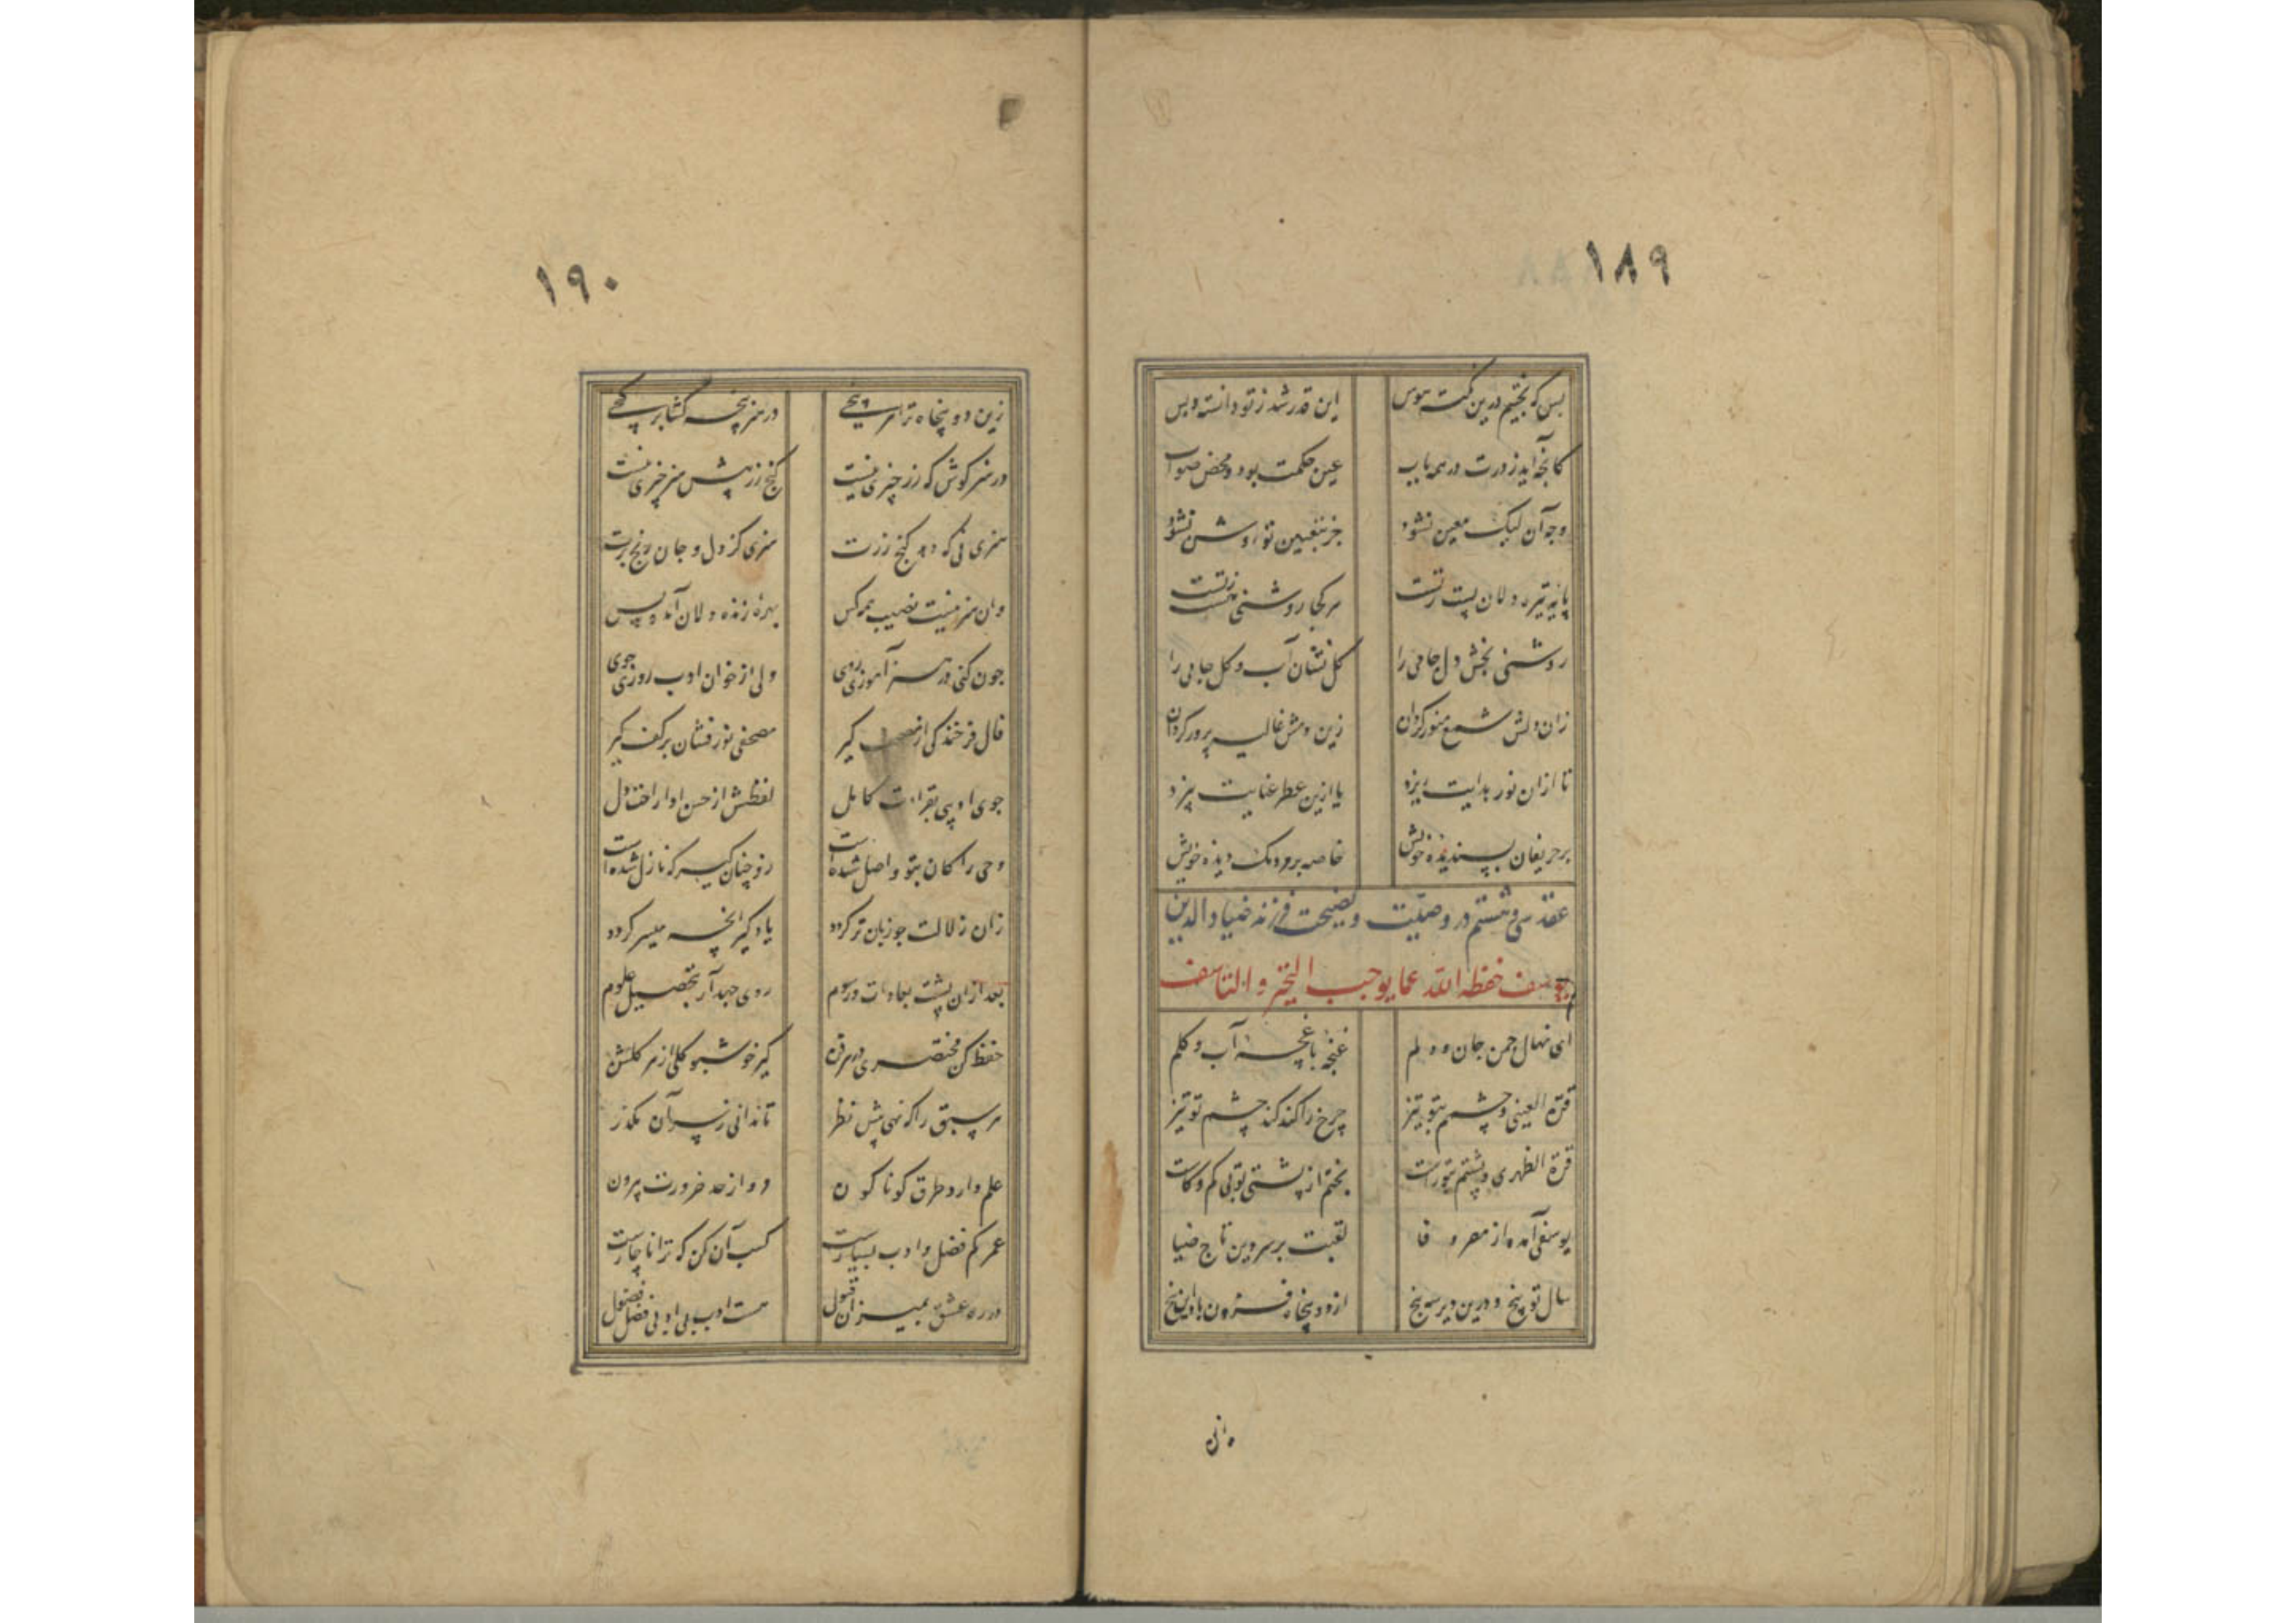 ١٨٩
بس که بجنبم درین نکته هوس این قدر شد ز تو دانسته و بس
کانچه آید ز درت در همه باب عین حکمت بود و محض صواب
وجه آن لیک معین نشود جز بتعیین تو روشن نشود
پایه تیره دلان پست ز تست هر کجا روشنی هست ز تست
روشنی بخش دل جامی را گل نشان آب و گل جامی را
زان دلش شمع منور گردان زین دمش غالیه پرور گردان
تا ازان نور هدایت ریزد یا ازین عطر عنایت بیزد
بر حریفان پسندیده خویش خاصه بر مردمک دیده خویش
عقد سی و ششم در وصیت و نصیحت فرزند ضیاء الدین
یوسف حفظه الله عما یوجب التحیر و التاسف
ای نهال چمن جان و دلم غنچه باغچه آب و گلم
قرة العینی و چشم بتو تیز چرخ را کند کند چشم تو تیز
قرة الظهری و پشتم بتو راست بختم از پشتی تو بی کم و کاست
یوسفی آمده از مصر وفا لقبت بر سر دین تاج ضیا
سال تو پنج و درین دیر سپنج از دو پنجاه فزون باد این پنج
١٩٠
زین دو پنجاه ترا هر پنجی در هنر پنجه گشا بر گنجی
در هنر کوش که زر چیزی نیست گنج زر پیش هنر چیزی نیست
هنری نی که دهد گنج زرت هنری کز دل و جان رنج برت
وان هنر نیست نصیب همه کس بهره زنده دلان آمد و بس
چون کنی در هنر آموزی روی ولی از خوان ادب روزی جوی
فال فرخندگی از مصحف گیر مصحفی نور فشان بر کف گیر
جوی اوپی بقراءت کامل لفظش از حسن ادا راحت دل
وحی را کان بتو واصل شده است رو چنان گیر که نازل شده است
زان زلالت چو زبان تر گردد یاد گیر انچه میسر گردد
بعد ازان پشت بعادات و رسوم روی جهد آر بتحصیل علوم
حفظ کن مختصری در هر فن گیر خوشبو گلی از هر گلشن
هر سبق را که نهی پیش نظر تا ندانی ز سر آن مگذر
علم دارد طرق گوناگون رو از حد ضرورت بیرون
عمر کم فضل و ادب بسیارست کسب آن کن که ترا ناچارست
در ره عشق بمیزان قبول هست ادب بی ادبی فضل فضول